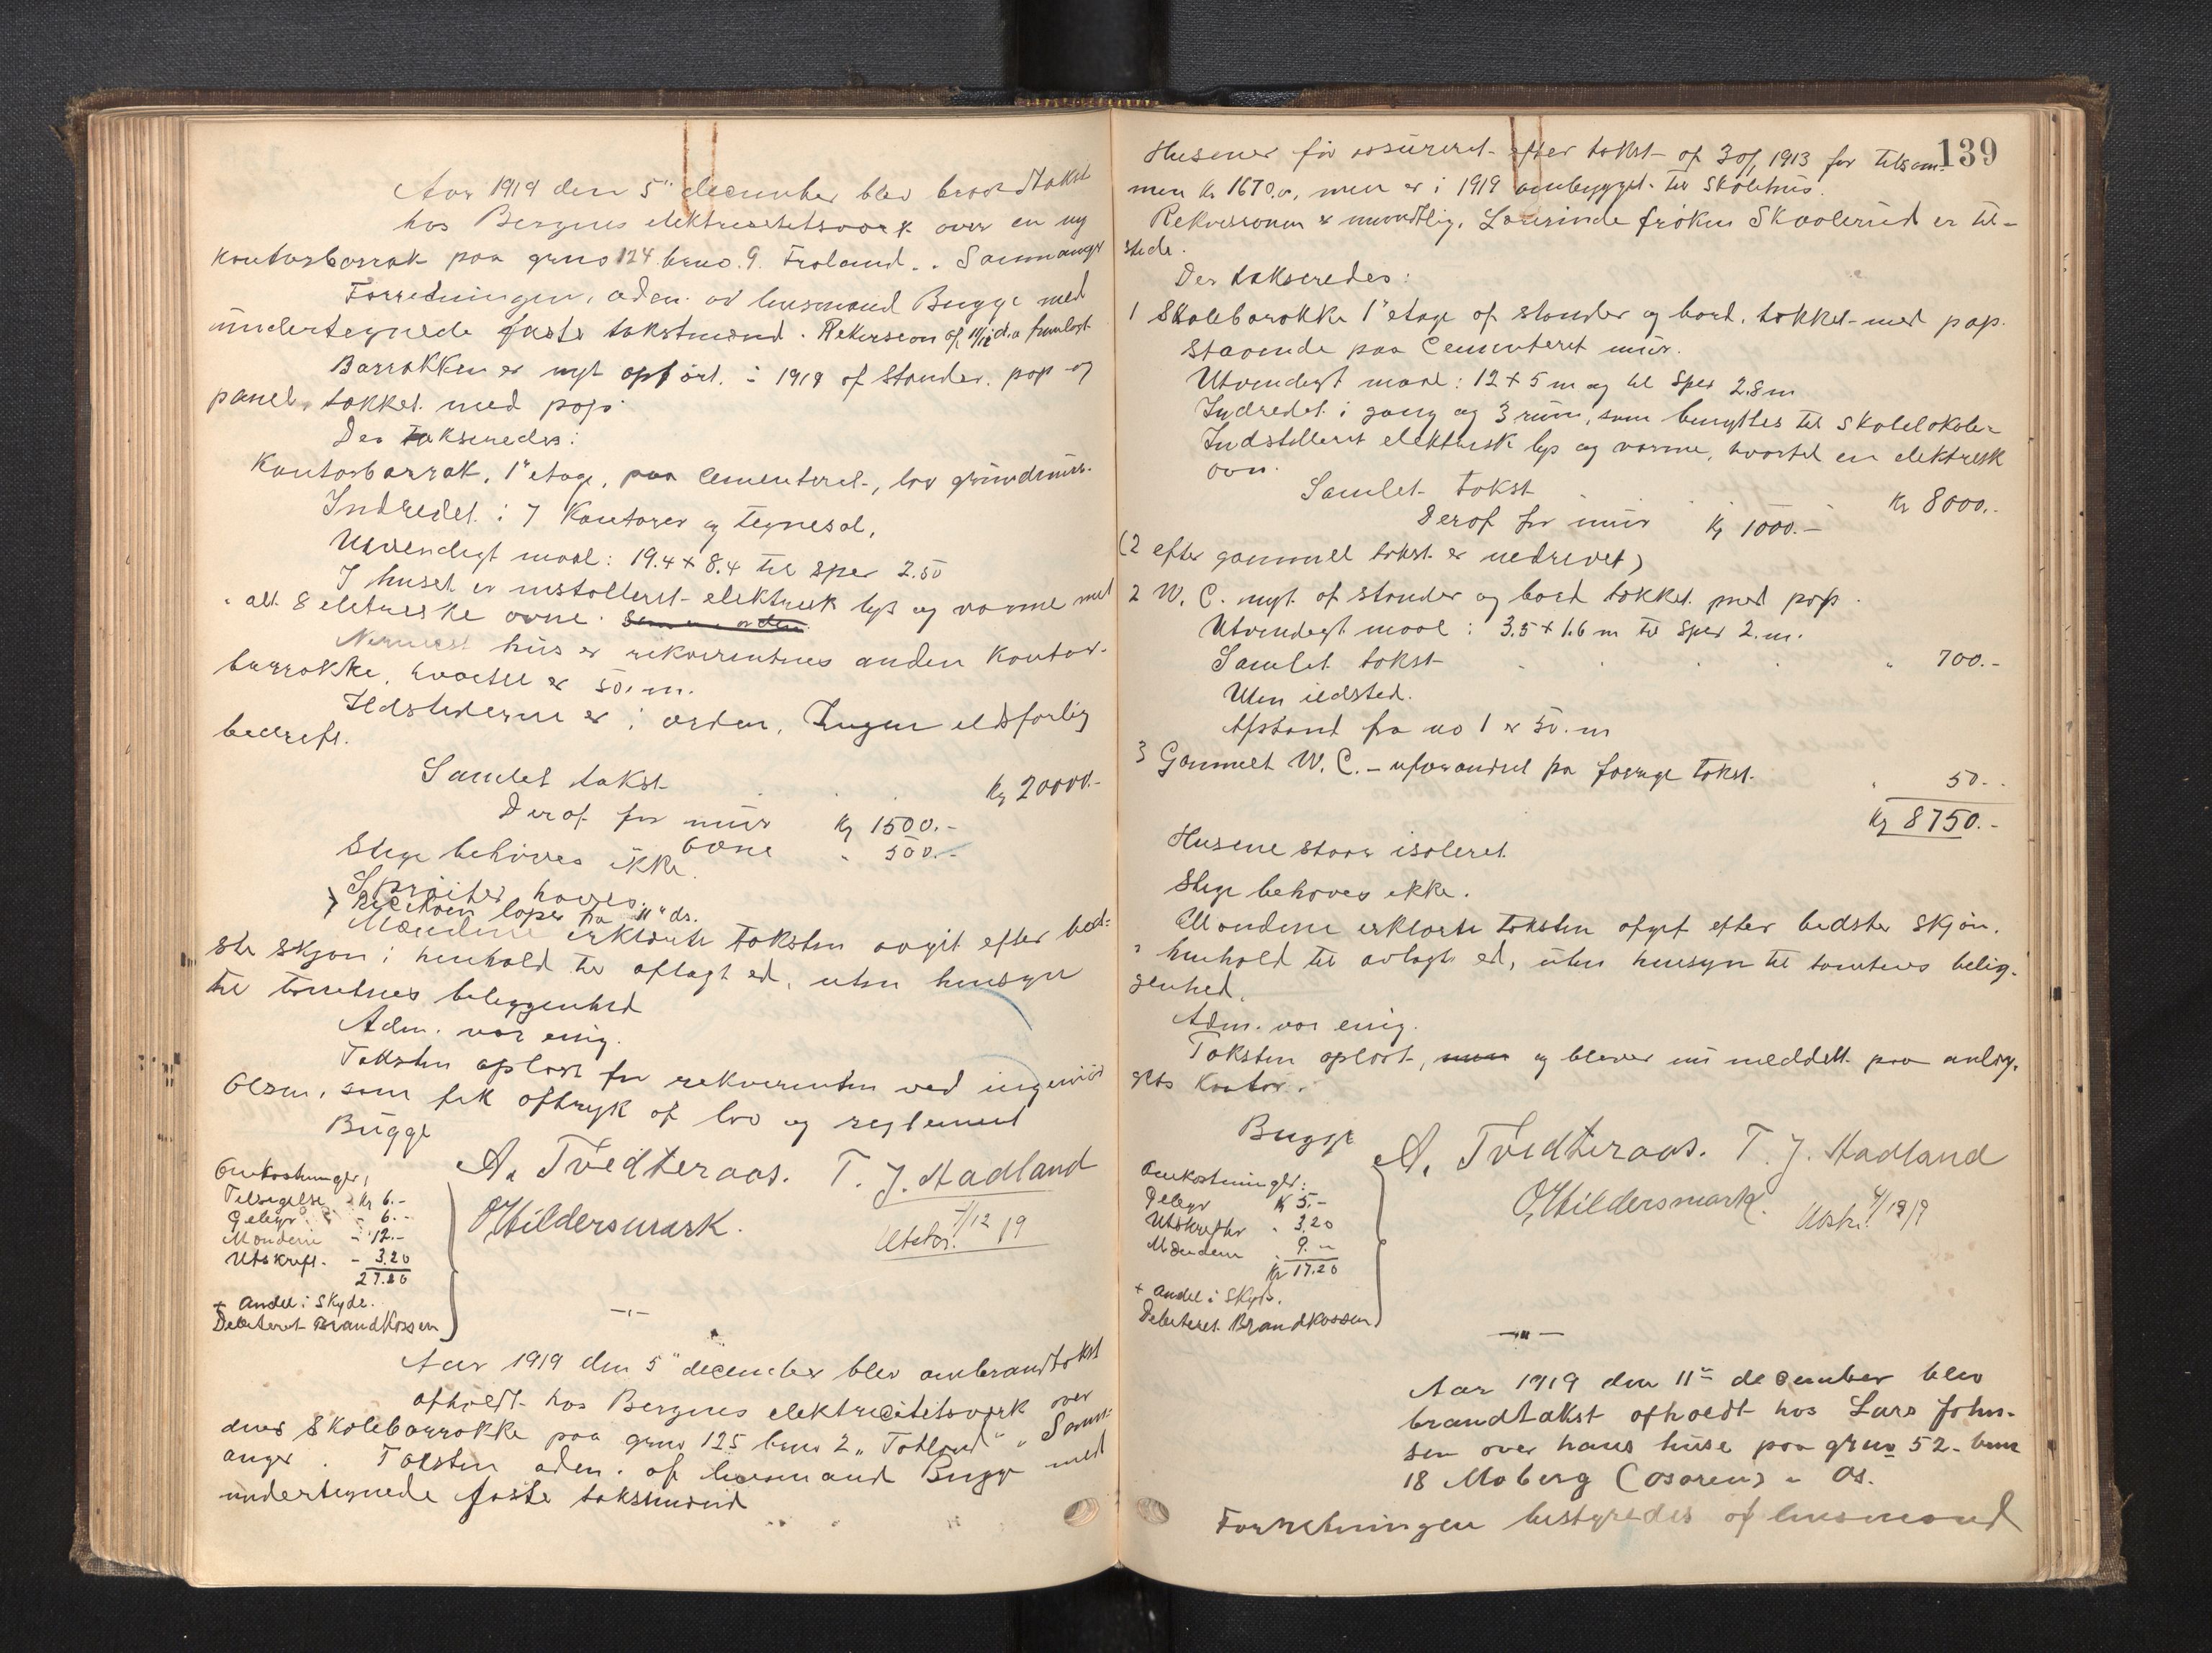 Aar 1919 den 5" december blev brandtakst
hos Bergens elektricitetsverk over en ny
kontorbarrak paa grno 124 brno. 9. Froland. Samnanger
Forretningen, adm. av lensmand Bugge med
undertegnede faste takstmænd. Rekvision af d.a fremlagt
Barrakken er nyt opført i 1919 af stander, pap og
panel, tækket med pap.
Der takseredes:
Kontorbarrak, 1" etage, paa cementeret, lav grundmur.
Indredet i 7 kontorer og tegnesal,
Utvendigt maal: 19.4 + 8.4 til sper 2.50
I huset er installeret elektrisk lys og varme med
i alt 8 elektriske ovne.
Nærmest hus er rekvirentens anden kontor-
barrakke, hvortil er 50. m.
Ildstederne er i orden, Ingen ildsfarlig
bedrift.
Samlet takst Kr 20000.-
Deraf for mur Kr 1500.-
ovne " 500.-
Stige behøves ikke.
Sprøiter haves.
løper fra 11" ds.
Mændene erklærte taksten avgit efter bed-
ste skjøn i henhold til aflagt ed, uten hensyn
til tomtenes beliggenhed
Adm. var enig.
Taksten oplæst for rekvirenten ved ingeniør
Olsen, som fik aftryk af lov og reglement
Bugge
A. Tvedteraas. T. J. Hadland
O Hildersmark.
Utskr. /12 19
Omkostninger,
Tilsigelse Kr 6.-
Gebyr - 6.-
Mændene - 12.-
Utskrift. - 3.20
27.20
+ Andel i Skyds.
Debiteret Brandkassen
Aar 1919 den 5" december blev ombrandtakst
afholdt hos Bergens elektricitetsverk over
dets Skolebarrakke paa grno 125 brno 2 „Totland" i Samn-
anger. Taksten adm. af lensmand Bugge med
undertegnede faste takstmænd
139
Husene før assureret efter takst af 30/ 1913 for tilsam-
men kr 1670.00, men er i 1919 ombygget til Skolehus.
Rekvisionen er mundtlig. Lærerinde frøken Skaalerud er til-
stede.
Der takseredes:
1 Skolebarakke 1" etage af stander og bord, tækket med pap.
Staaende paa Cementeret mur.
Utvendigt maal: 12 + 5 m og til Sper 2.8 m
Indredet i gang og 3 rum, som benyttes til Skolelokale
Indstalleret elektrisk lys og varme, hvortil en elektrisk
ovn.
Samlet takst Kr 8000.-
Deraf for mur Kr 1000.-
(2 efter gammel takst er nedrevet)
2 W. C. nyt af stander og bord tækket med pap.
Utvendigt maal: 3.5 + 1.6 m til Sper 2. m.
Samlet takst " 700.-
Uten ildsted.
Afstand fra no 1 er 50. m
3 Gammelt W. C. - uforandret fra forrige takst. " 50.-
Kr 8750.-
Husene staar isoleret.
Stige behøves ikke.
Mændene erklærte taksten afgit efter bedste Skjøn,
i henhold til avlagt ed, uten hensyn til tomtens belig-
genhed.
Adm. var enig.
Taksten oplæst, men og blever nu meddelt paa anlæg-
gets kontor.
Bugge
A. Tvedteraas. T. J. Hadland
O. Hildersmark. Utskr. /12 19
Omkostninger:
Gebyr K 5.-
Utskrifter " 3.20
Mændene " 9.-
Kr 17.20
+ andel i Skyds.
Debiteret Brandkassen
Aar 1919 den 11" december blev
brandtakst afholdt hos Lars John-
sen over hans huse paa grno 52 brno
18 Moberg (Osøren) i Os.
Forretningen bestyredes af lensmand